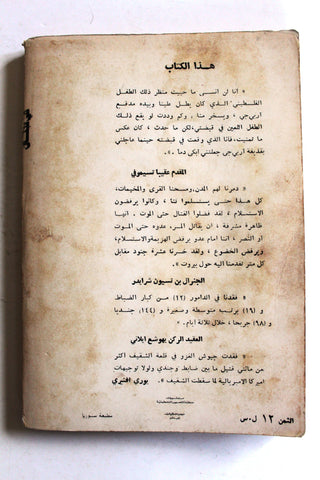 هذا الكتاب
« انا لن انسى ما حييت منظر ذلك الطفل
الفلسطيني الذي كان يطل علينا وبيده مدفع
آر بي جي ، ويسخر منا . وكم وددت لو يقع ذلك
الطفل اللعين في قبضتي، لكن ما حدث ، كان عكس
ما تمنيت، فأنا الذي وقعت في قبضته حينما عاجلني
بقذيفة آر بي جي جعلتني أبكي دما . ».
المقدم عقيبا تسيموفي
« دمرنا لهم المدن، ومسحنا القرى والمخيمات،
كل هذا حتى يستسلموا لنا ، وكانوا يرفضون
الاستسلام ، لقد فضلوا القتال حتى الموت . انها
ظاهرة مشرفة ، ان يقاتل المرء عدوه حتى الموت
او النصر ، اننا امام عدو يرفض الهزيمة والاستسلام،
ويرفض الخضوع ، ولقد خسرنا عشرة جنود مقابل
كل متر تقدمنا اليه حول بيروت ».
الجنرال بن تسيون شرايدر
« فقدنا في الدامور (١٢) من كبار الضباط
و (١٦) برتب متوسطة وصغيرة و (١٤٤) جنديا
و (٦٨) جريحا ، خلال ثلاثة ايام . ».
العقيد الركن يهوشع ايلاني
« فقدت جيوش الغزو في قلعة الشقيف اكثر
من مائتي قتيل ما بين ضابط وجندي ولولا توجيهات
اميركا الامبريالية لما سقطت الشقيف ». يوري افنيري
الثمن ١٢ ل٠س
مطبعة سوريا